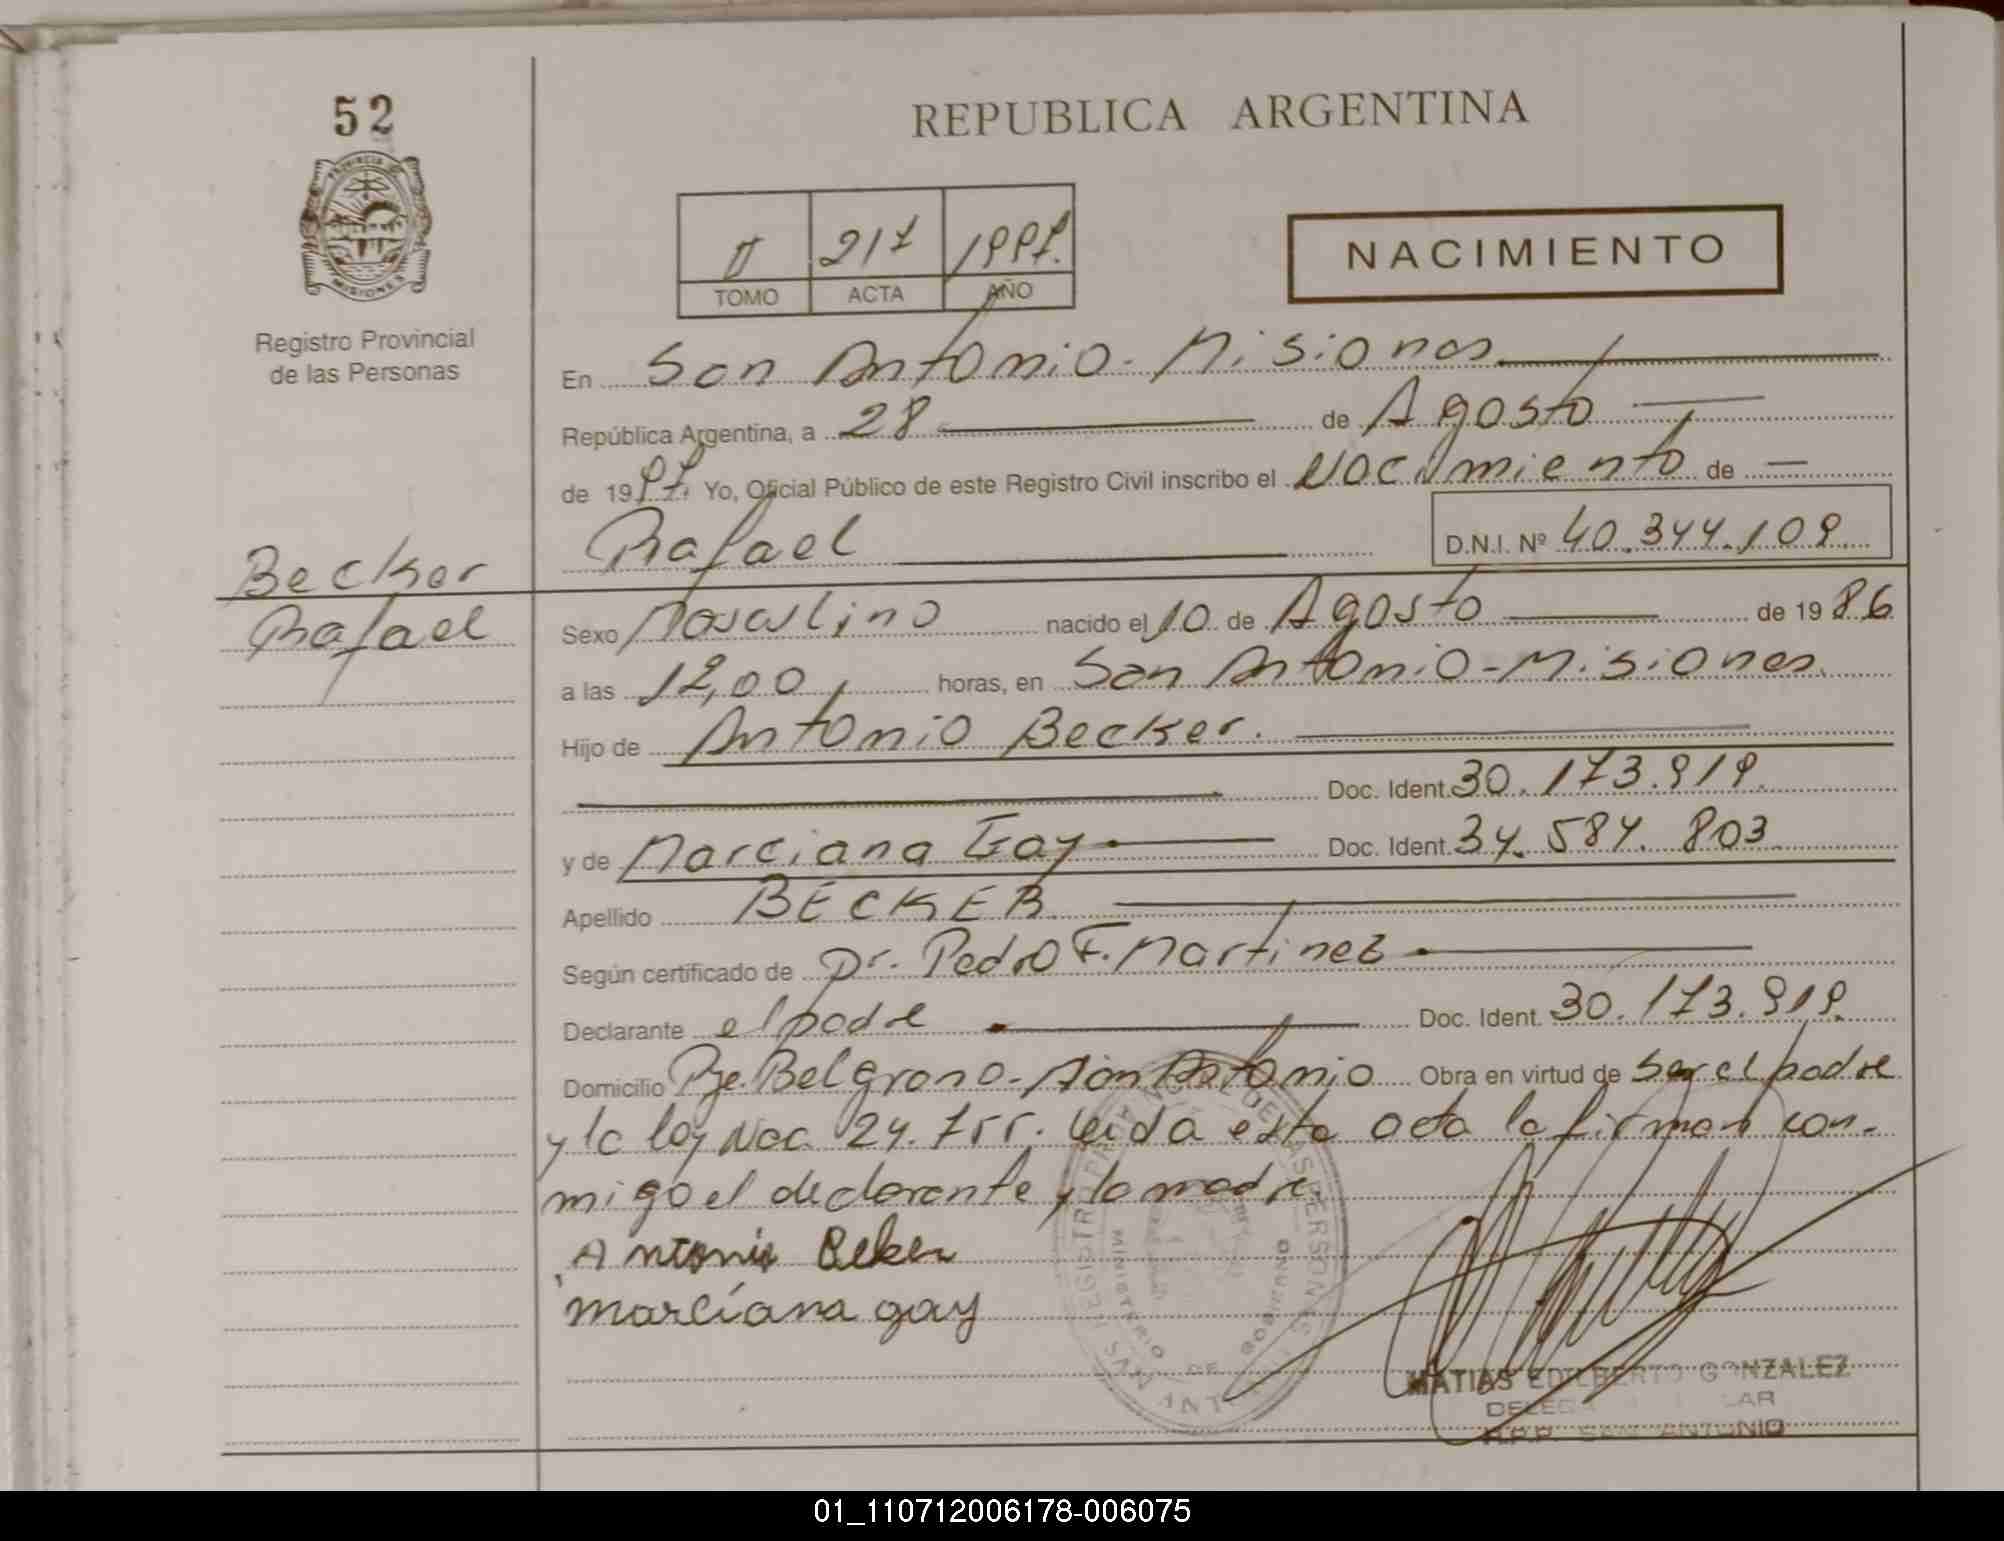 52
REPUBLICA ARGENTINA
PROVINCIA DE
MISIONES
Registro Provincial
de las Personas
II 217 1997.
TOMO ACTA AÑO
NACIMIENTO
En San Antonio - Misiones
República Argentina, a 28 de Agosto
de 1997. Yo, Oficial Público de este Registro Civil inscribo el Nacimiento de
Rafael D.N.I. Nº 40.344.109
Becker
Rafael
Sexo Masculino nacido el 10 de Agosto de 1986
a las 12,00 horas, en San Antonio - Misiones.
Hijo de Antonio Becker.
Doc. Ident. 30.173.919.
y de Marciana Gay Doc. Ident. 34.584.803
Apellido BECKER
Según certificado de Dr. Pedro F. Martinez
Declarante el padre Doc. Ident. 30.173.919.
Domicilio Pje. Belgrano - San Antonio Obra en virtud de ser el padre
y la ley Nac. 24.755. Leida esta acta la firman con-
migo el declarante y la madre.
Antonio Beker
marciana gay
REGISTRO PROVINCIAL DE LAS PERSONAS
MINISTERIO DE GOBIERNO
SAN ANTONIO
MATIAS EDILBERTO GONZALEZ
R.P.P. SAN ANTONIO
01_110712006178-006075